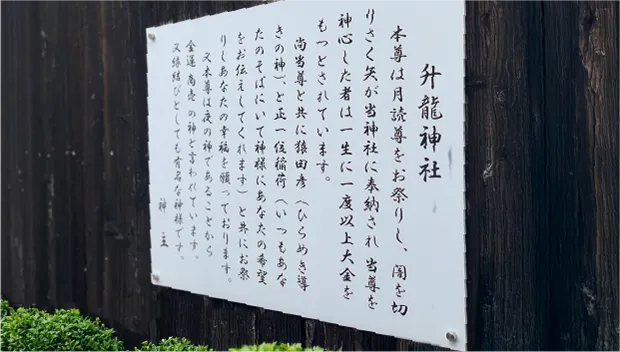 升龍神社
本尊は月読尊をお祭りし、闇を切
りさく矢が当神社に奉納され当尊を
神心した者は一生に一度以上大金を
もつとされています。
尚当尊と共に猿田彦(ひらめき導
きの神)、と正一位稲荷(いつもあな
たのそばにいて神様にあなたの希望
をお伝えしてくれます)と共にお祭
りしあなたの幸福を願っております。
又本尊は夜の神であることから
金運商売の神と言われています。
又縁結びとしても有名な神様です。
神主